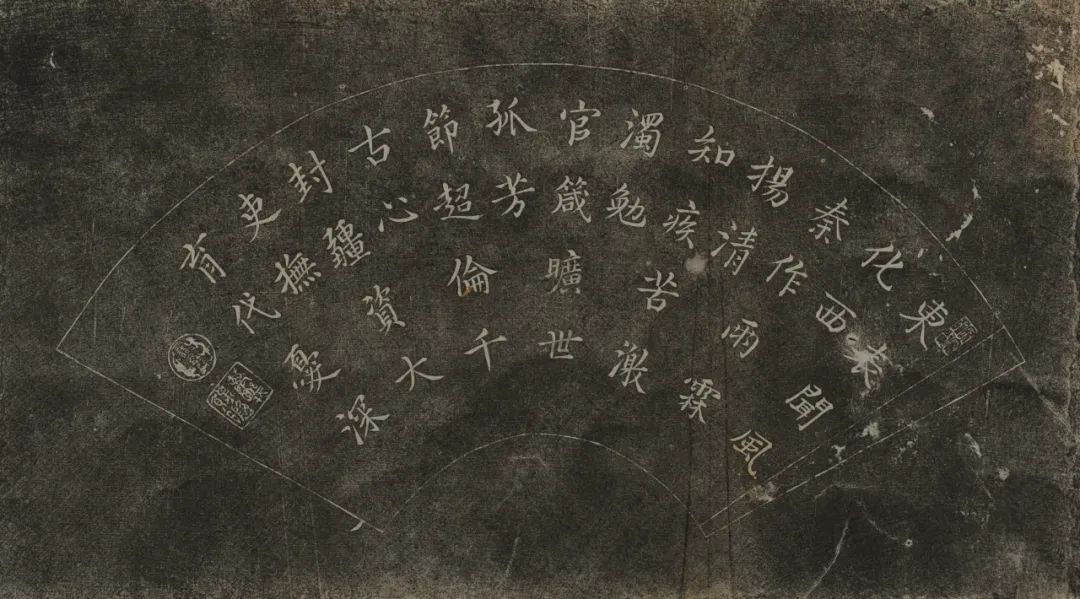 東萊聞風
化西
秦作雨霖
揚清
知疾苦激
濁勉
官箴曠世
孤芳
節超倫千
古心
封疆資大
吏撫
育代憂深